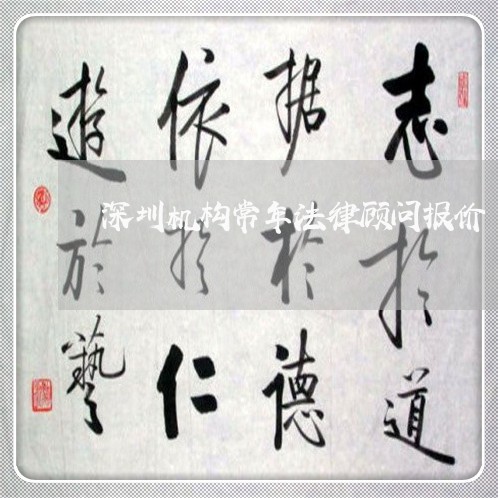 志於道
据於德
依於仁
遊於藝
深圳机构常年法律顾问报价